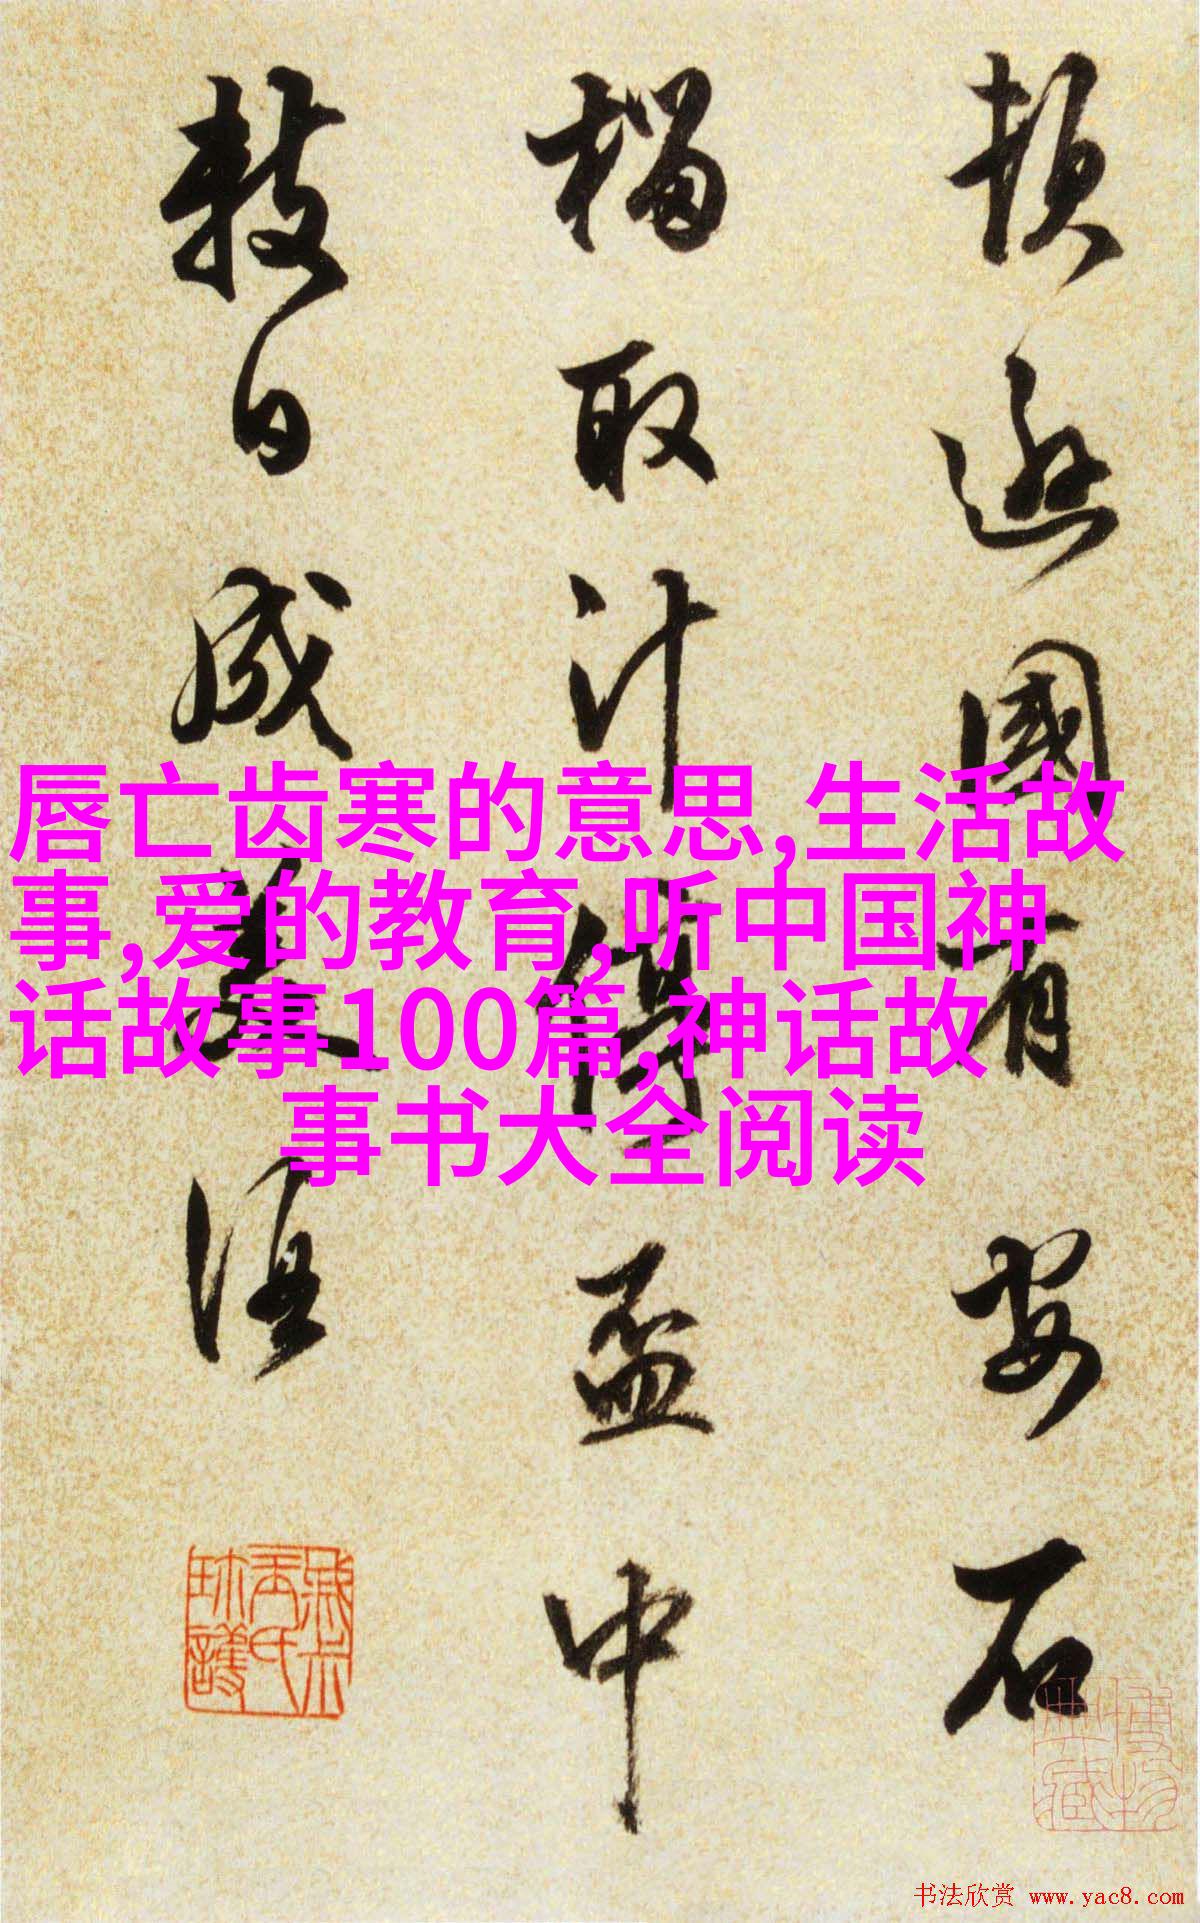 頓遜國有安石
榴取汁停盃中
數日成美酒
唇亡齿寒的意思,生活故
事,爱的教育,听中国神
话故事100篇,神话故
事书大全阅读
书法欣赏 www.yac8.com